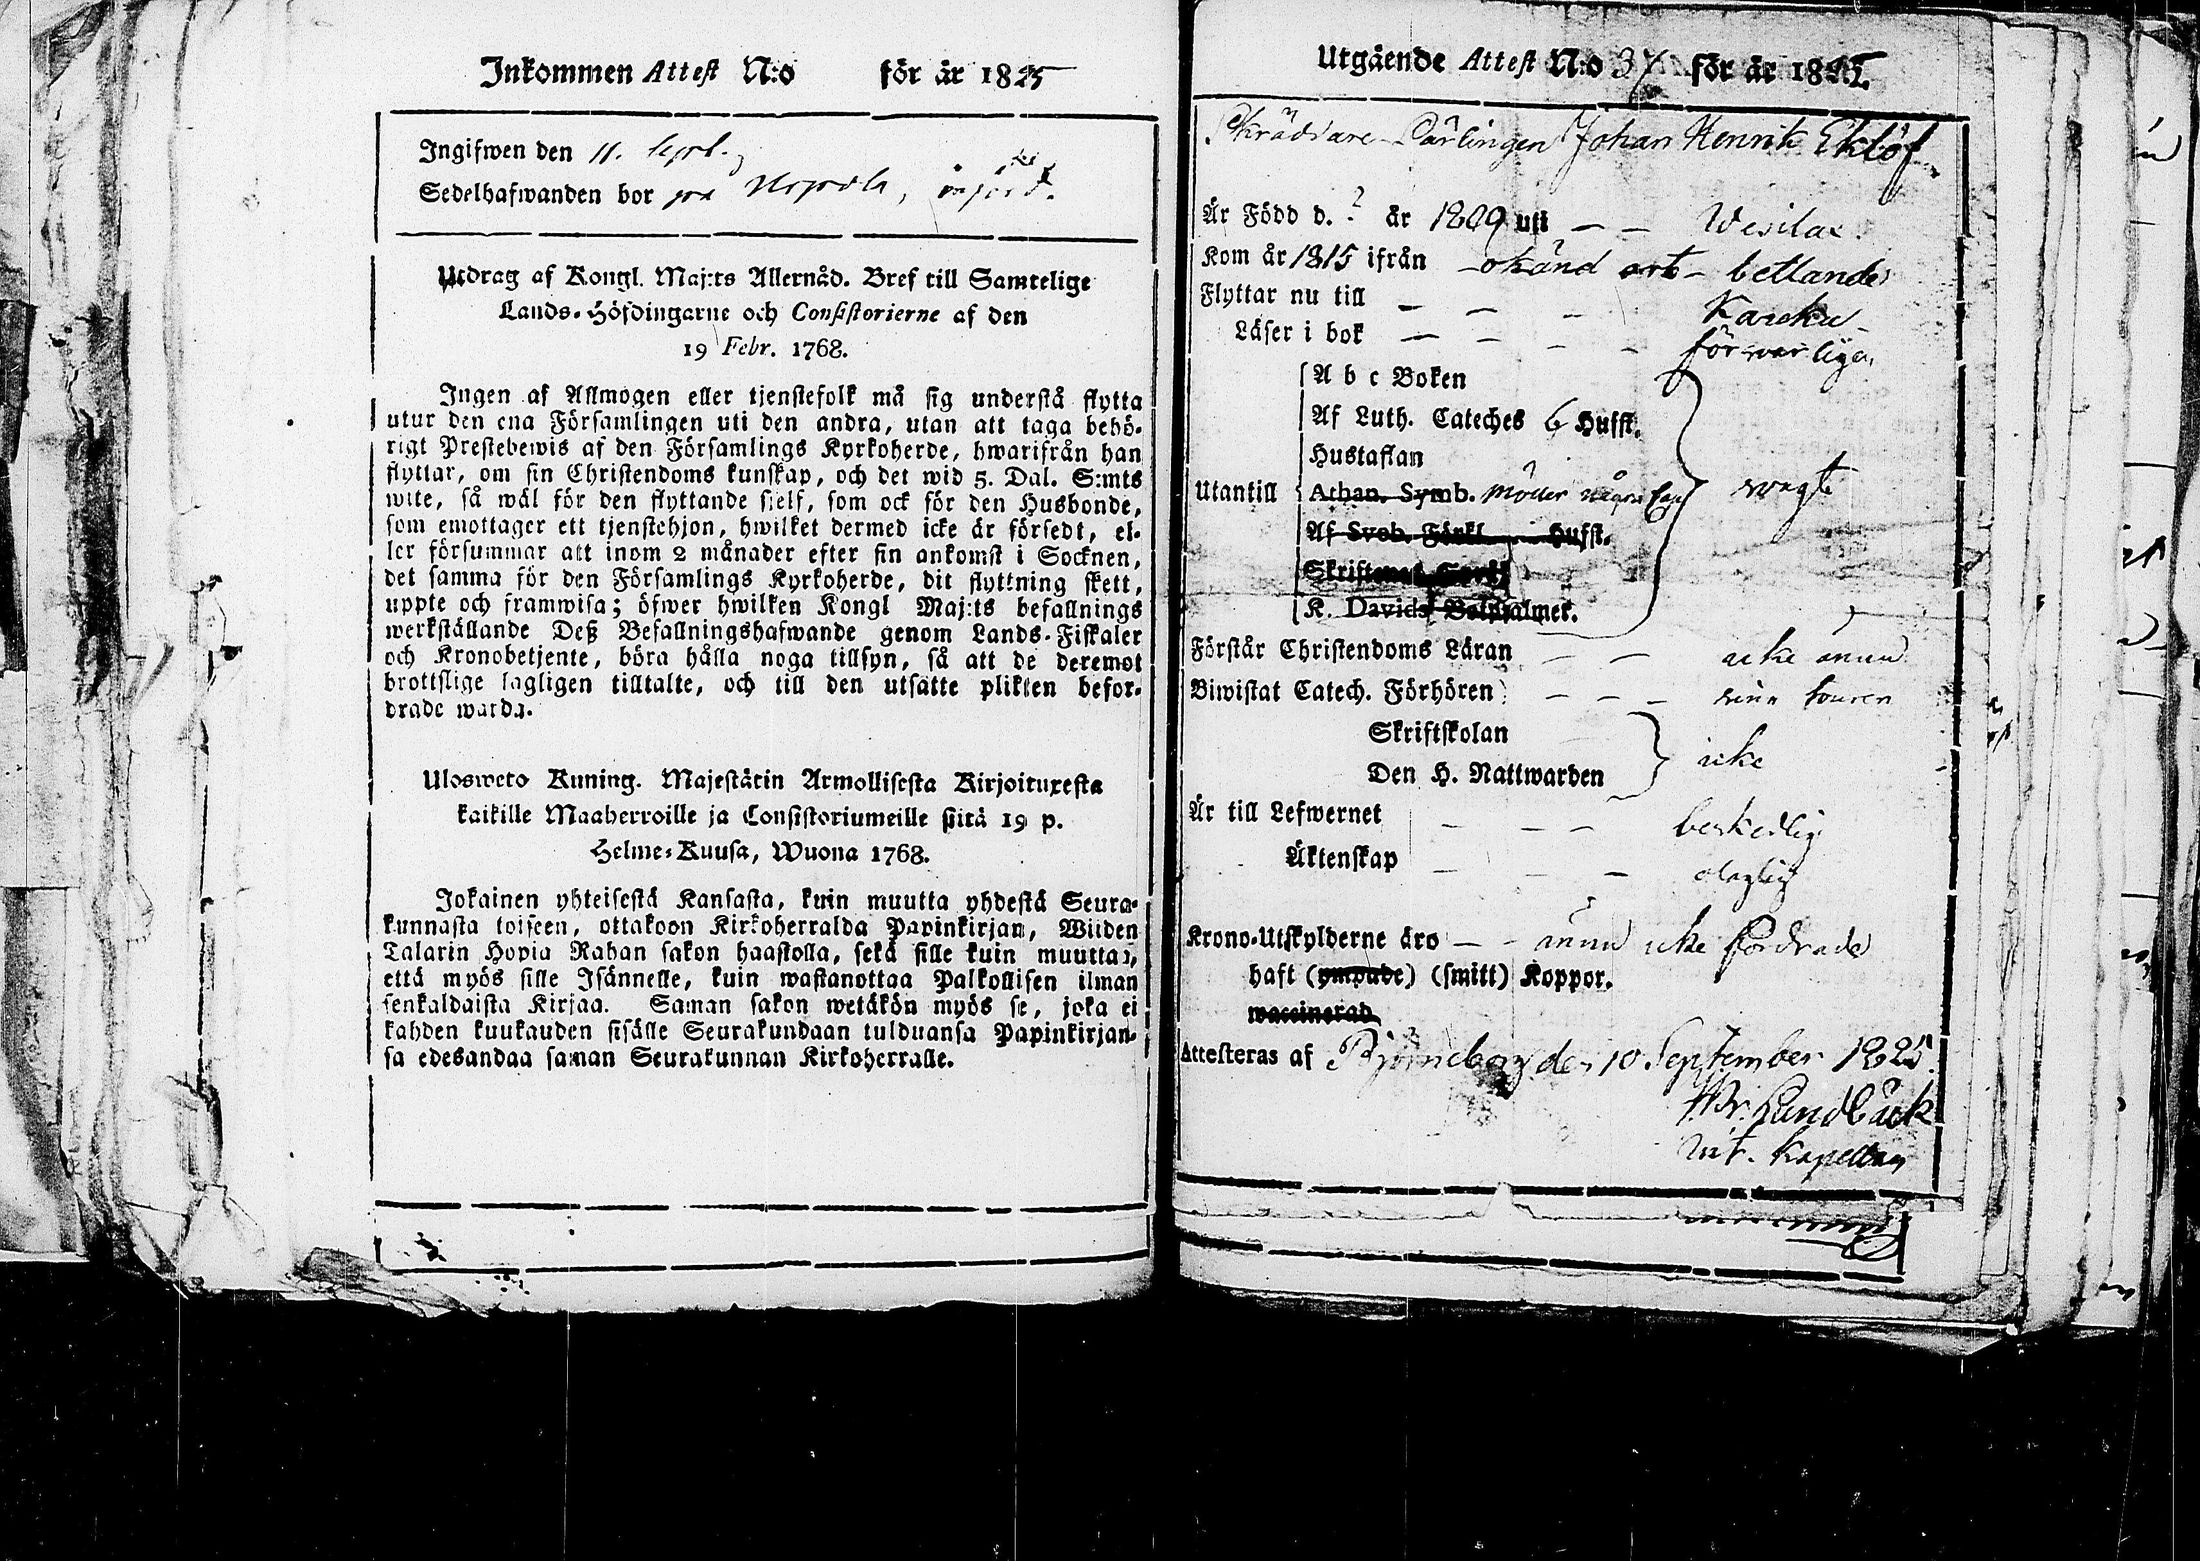 Inkommen Attest N:o för år 1825
Ingifwen den 11. Sept.
Sedelhafwanden bor på
Utdrag af Kongl. Maj:ts Allernåd. Bref till Samtelige
Lands-Höfdingarne och Consistorierne af den
19 Febr. 1768.
Ingen af Allmogen eller tjenstefolk må sig understå flytta
utur den ena Församlingen uti den andra, utan att taga behö-
rigt Prestebewis af den Församlings Kyrkoherde, hwarifrån han
flyttar, om sin Christendoms kunskap, och det wid 5. Dal. S:mts
wite, så wäl för den flyttande sjelf, som ock för den Husbonde,
som emottager ett tjenstehjon, hwilket dermed icke är försedt, el-
ler försummar att inom 2 månader efter sin ankomst i Socknen,
det samma för den Församlings Kyrkoherde, dit flyttning skett,
uppte och framwisa; öfwer hwilken Kongl Maj:ts befallnings
werkställande Deß Befallningshafwande genom Lands-Fiskaler
och Kronobetjente, böra hålla noga tillsyn, så att de deremot
brottslige lagligen tilltalte, och till den utsatte plikten befor-
drade warda.
Ulosweto Kuning. Majestätin Armollisesta Kirjoituxesta
kaikille Maaherroille ja Consistoriumeille siitä 19 p.
Helme-Kuusa, Wuona 1768.
Jokainen yhteisestä Kansasta, kuin muutta yhdestä Seura-
kunnasta toiseen, ottakoon Kirkoherralda Papinkirjan, Wiiden
Talarin Hopia Rahan sakon haastolla, sekä sille kuin muuttaa,
että myös sille Isännelle, kuin wastanottaa Palkollisen ilman
senkaldaista Kirjaa. Saman sakon wetäkön myös se, joka ei
kahden kuukauden sisälle Seurakundaan tulduansa Papinkirjan-
sa edesandaa saman Seurakunnan Kirkoherralle.
Utgående Attest N:o 37 för år 1825.
Skräddare-Lärlingen Johan Henrik Eklöf
Är Född d. ? år 1809 uti — — Wesilax.
Kom år 1815 ifrån — okänd ort — betlande
Flyttar nu till — — — Karcku
Läser i bok — — — — försvarligen
A b c Boken
Af Luth. Cateches 6 Hufst.
Hustaflan
Utantill Athan. Symb. några swagt
Af Sveb. Förkl. Hufst.
K. Davids Botpsalmer.
Förstår Christendoms Läran — — icke ännu
Biwistat Catech. Förhören — — —
Skriftskolan
Den H. Nattwarden icke
Är till Lefwernet — — — beskedlig
Äktenskap — — — oläglig
Krono-Utskylderne äro — — ännu icke fordrade
haft (ympade) (smitt) Koppor.
waccinerad
Attesteras af Björneborg den 10 September 1825.
Lundbäck
Kapellan